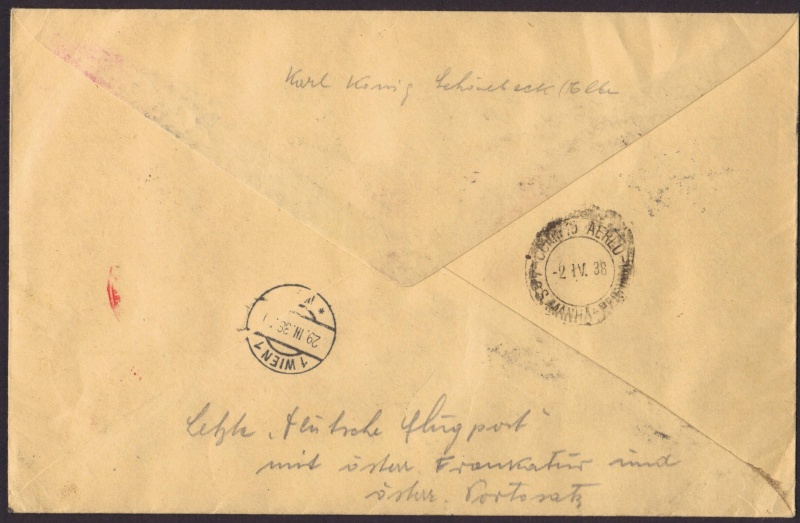 Karl König Schönebeck/Elbe
CORREIO AEREO
-2.IV.38
29.III.38
1 WIEN 1
Letzte „Deutsche Flugpost“
mit österr. Frankatur und
österr. Portosatz